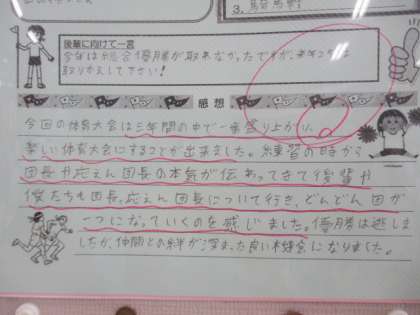 3. 騎馬戦
後輩に向けて一言
今年は総合優勝が取れなかったですが、来年こそは
取りかえして下さい！
感想
今回の体育大会は三年間の中で一番盛り上がり、
楽しい体育大会にすることが出来ました。練習の時から
団長や応えん団長の本気が伝わってきて後輩や
僕たちも団長、応えん団長について行き、どんどん団が
一つになっていくのを感じました。優勝は逃しま
したが、仲間との絆が深まった良い機会になりました。